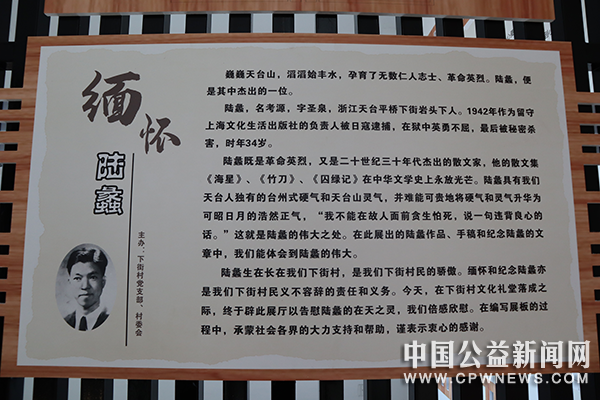 缅怀
陆蠡
主办：下街村党支部、村委会
巍巍天台山，滔滔始丰水，孕育了无数仁人志士、革命英烈。陆蠡，便
是其中杰出的一位。
陆蠡，名考源，字圣泉，浙江天台平桥下街岩头下人。1942年作为留守
上海文化生活出版社的负责人被日寇逮捕，在狱中英勇不屈，最后被秘密杀
害，时年34岁。
陆蠡既是革命英烈，又是二十世纪三十年代杰出的散文家，他的散文集
《海星》、《竹刀》、《囚绿记》在中华文学史上永放光芒。陆蠡具有我们
天台人独有的台州式硬气和天台山灵气，并难能可贵地将硬气和灵气升华为
可昭日月的浩然正气，“我不能在故人面前贪生怕死，说一句违背良心的
话。”这就是陆蠡的伟大之处。在此展出的陆蠡作品、手稿和纪念陆蠡的文
章中，我们能体会到陆蠡的伟大。
陆蠡生在长在我们下街村，是我们下街村民的骄傲。缅怀和纪念陆蠡亦
是我们下街村民义不容辞的责任和义务。今天，在下街村文化礼堂落成之
际，终于辟此展厅以告慰陆蠡的在天之灵，我们倍感欣慰。在编写展板的过
程中，承蒙社会各界的大力支持和帮助，谨表示衷心的感谢。
中国公益新闻网
WWW.CPWNEWS.COM